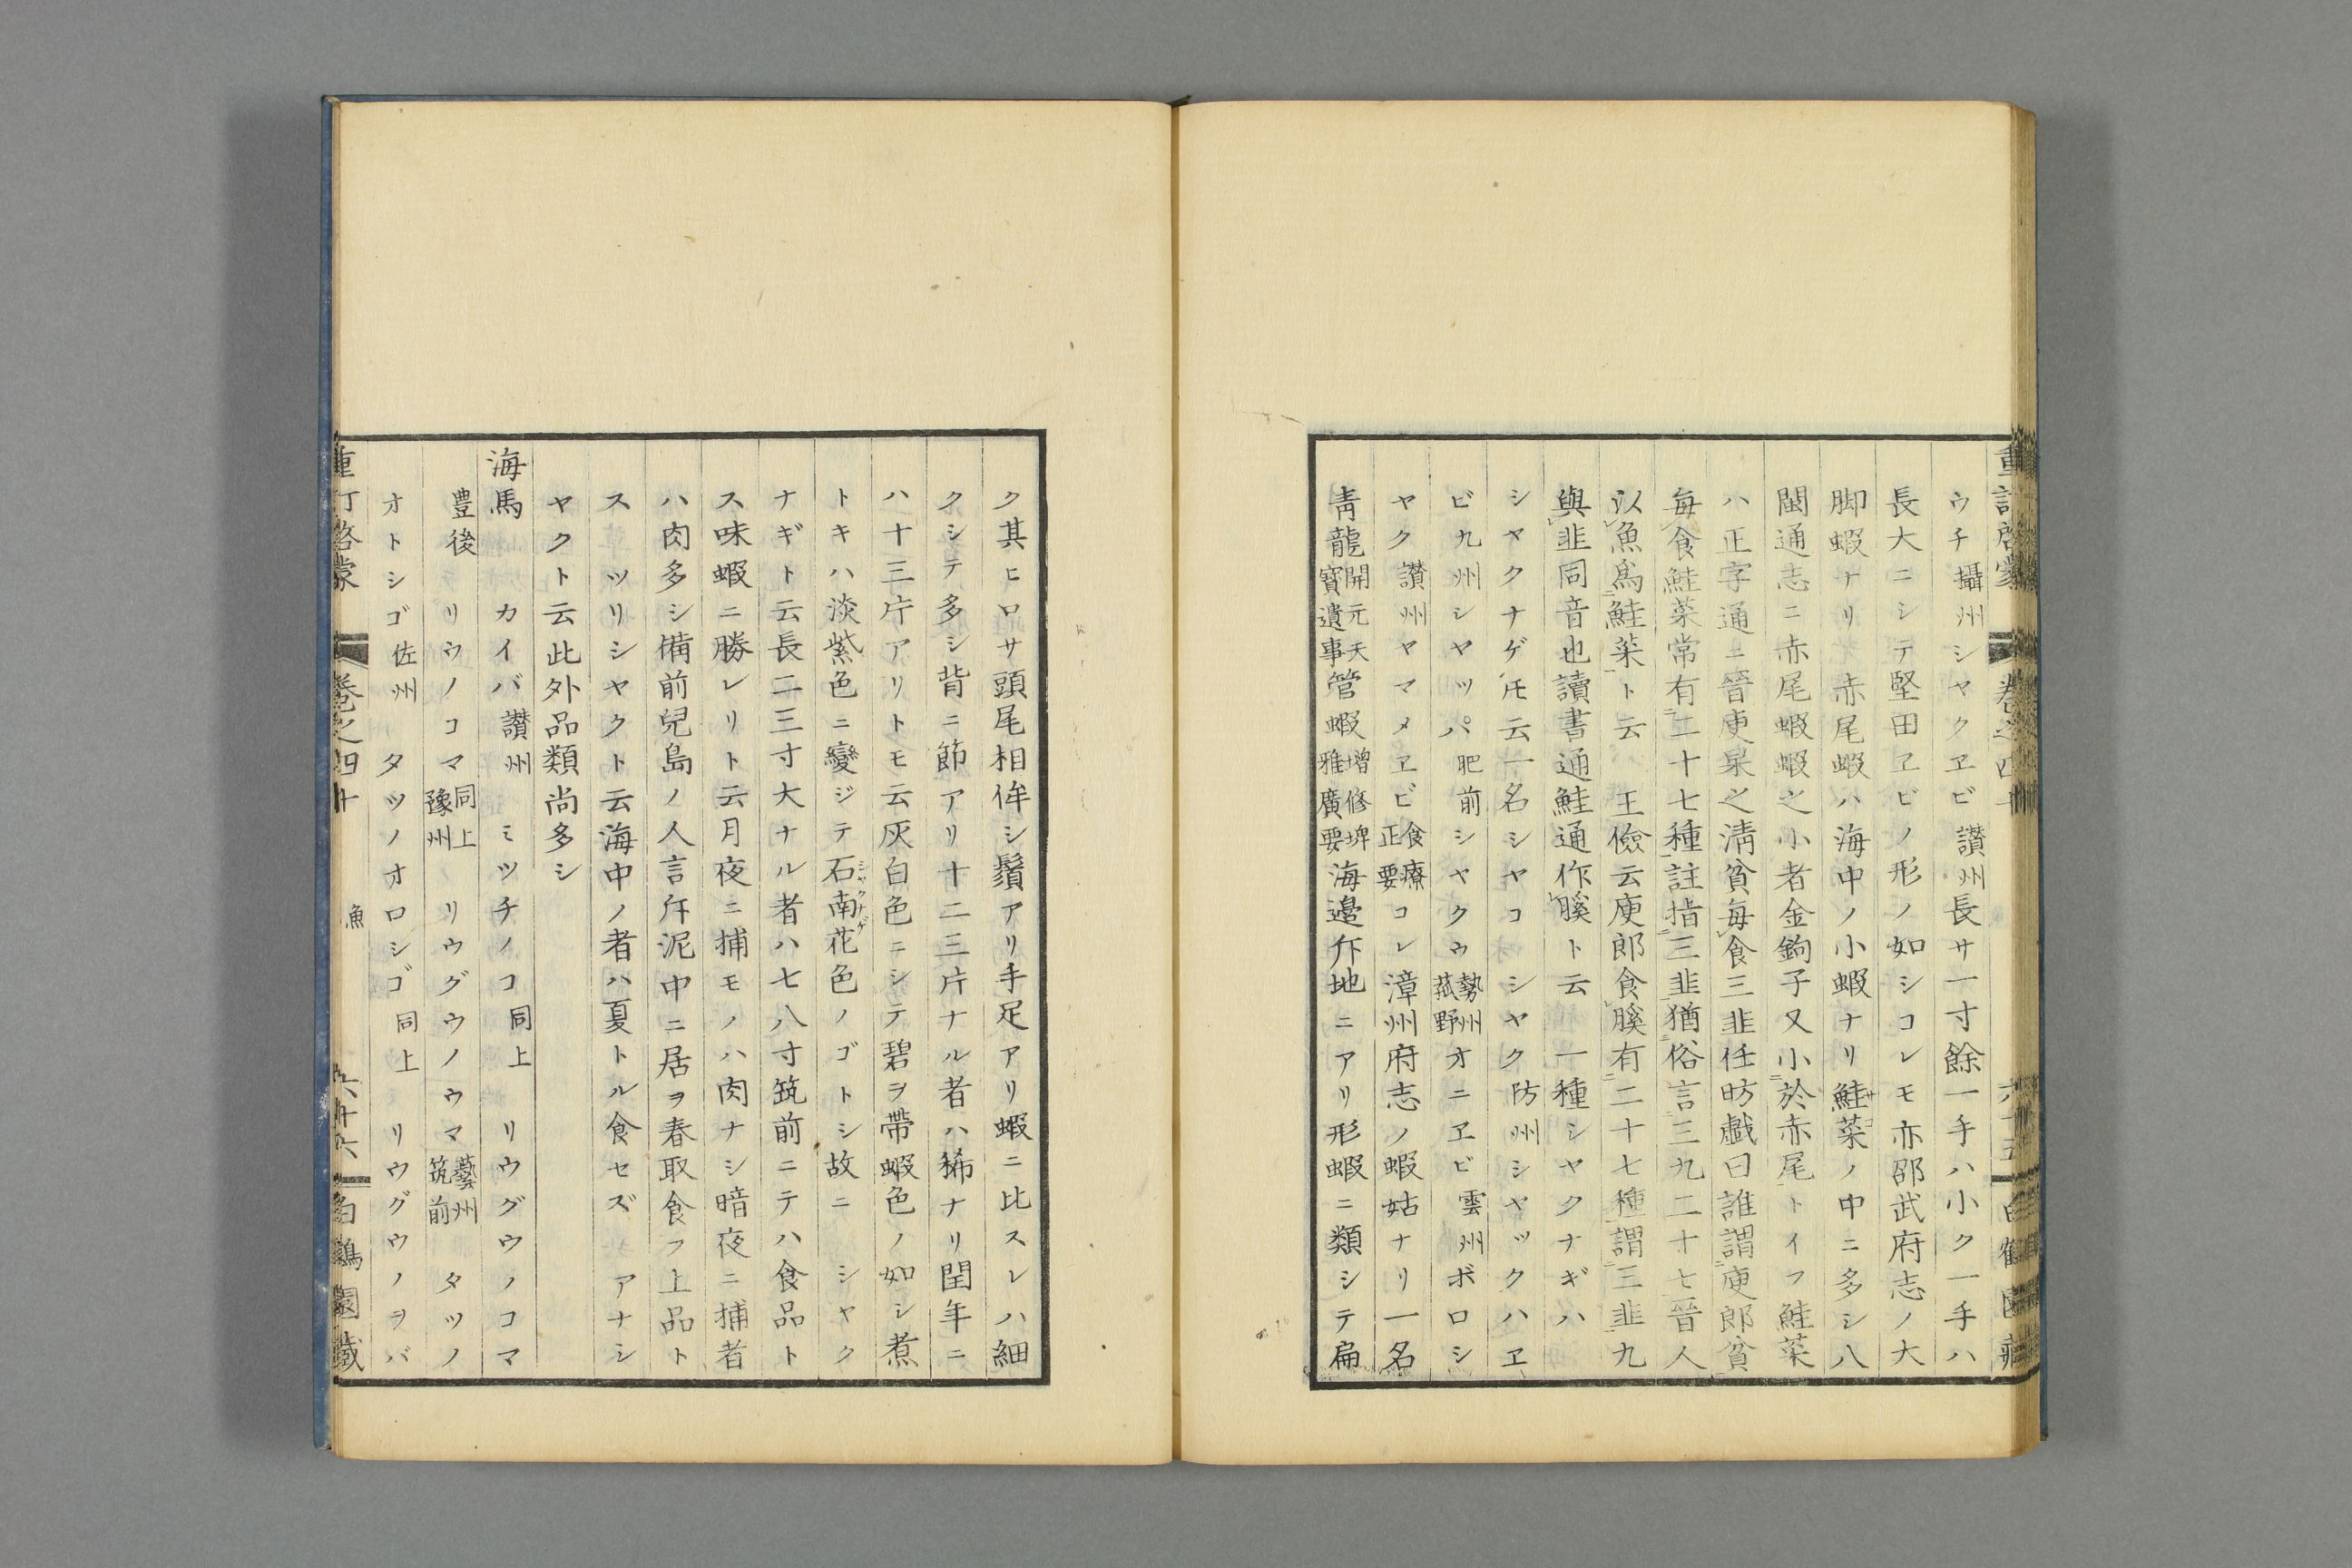 重訂啓蒙 巻之四十 六十五
ウチ 攝州 シヤクヱビ 讃州 長サ一寸餘一手ハ小ク一手ハ
長大ニシテ堅田ヱビノ形ノ如シコレモ亦邵武府志ノ大
脚蝦ナリ赤尾蝦ハ海中ノ小蝦ナリ鮭菜ノ中ニ多シ八
閩通志ニ赤尾蝦蝦之小者金鉤子又小於赤尾トイフ鮭菜
ハ正字通ニ晉庾杲之淸貧每食三韭任昉戲曰誰謂庾郎貧
每食鮭菜常有二十七種註指三韭猶俗言三九二十七晉人
以魚爲鮭菜ト云 王儉云庾郎食䐼有二十七種謂三韭九
與韭同音也讀書通鮭通作䐼ト云 一種シヤクナギハ
シヤクナゲ𪜈云一名シヤコ シヤク 防州 シヤックハヱ
ビ 九州 シヤッパ 肥前 シヤクウ 勢州菰野 オニヱビ 雲州 ボロシ
ヤク 讃州 ヤマメヱビ 食療正要 コレ漳州府志ノ蝦姑ナリ一名
靑龍 開元天寶遺事 管蝦 增修埤雅廣要 海邉斥地ニアリ形蝦ニ類シテ扁
ク其ヒロサ頭尾相侔シ鬚アリ手足アリ蝦ニ比スレハ細
クシテ多シ背ニ節アリ十二三片ナル者ハ稀ナリ閏年ニ
ハ十三片アリトモ云灰白色ニシテ碧ヲ帶蝦色ノ如シ煮
トキハ淡紫色ニ變ジテ石南花シャクナゲ色ノゴトシ故ニ シヤク
ナギト云長二三寸大ナル者ハ七八寸筑前ニテハ食品ト
ス味蝦ニ勝レリト云月夜ニ捕モノハ肉ナシ暗夜ニ捕者
ハ肉多シ備前兒島ノ人言斥泥中ニ居ヲ春取食フ上品ト
ス ツリシヤクト云海中ノ者ハ夏トル食セズ アナシ
ヤクト云此外品類尚多シ
海馬 カイバ 讃州 ミツチノコ 同上 リウグウノコマ
豊後 リウノコマ 同上豫州 リウグウノウマ 藝州筑前 タツノ
オトシゴ 佐州 タツノオロシゴ 同上 リウグウノヲバ
重訂啓蒙 巻之四十 魚 六十六